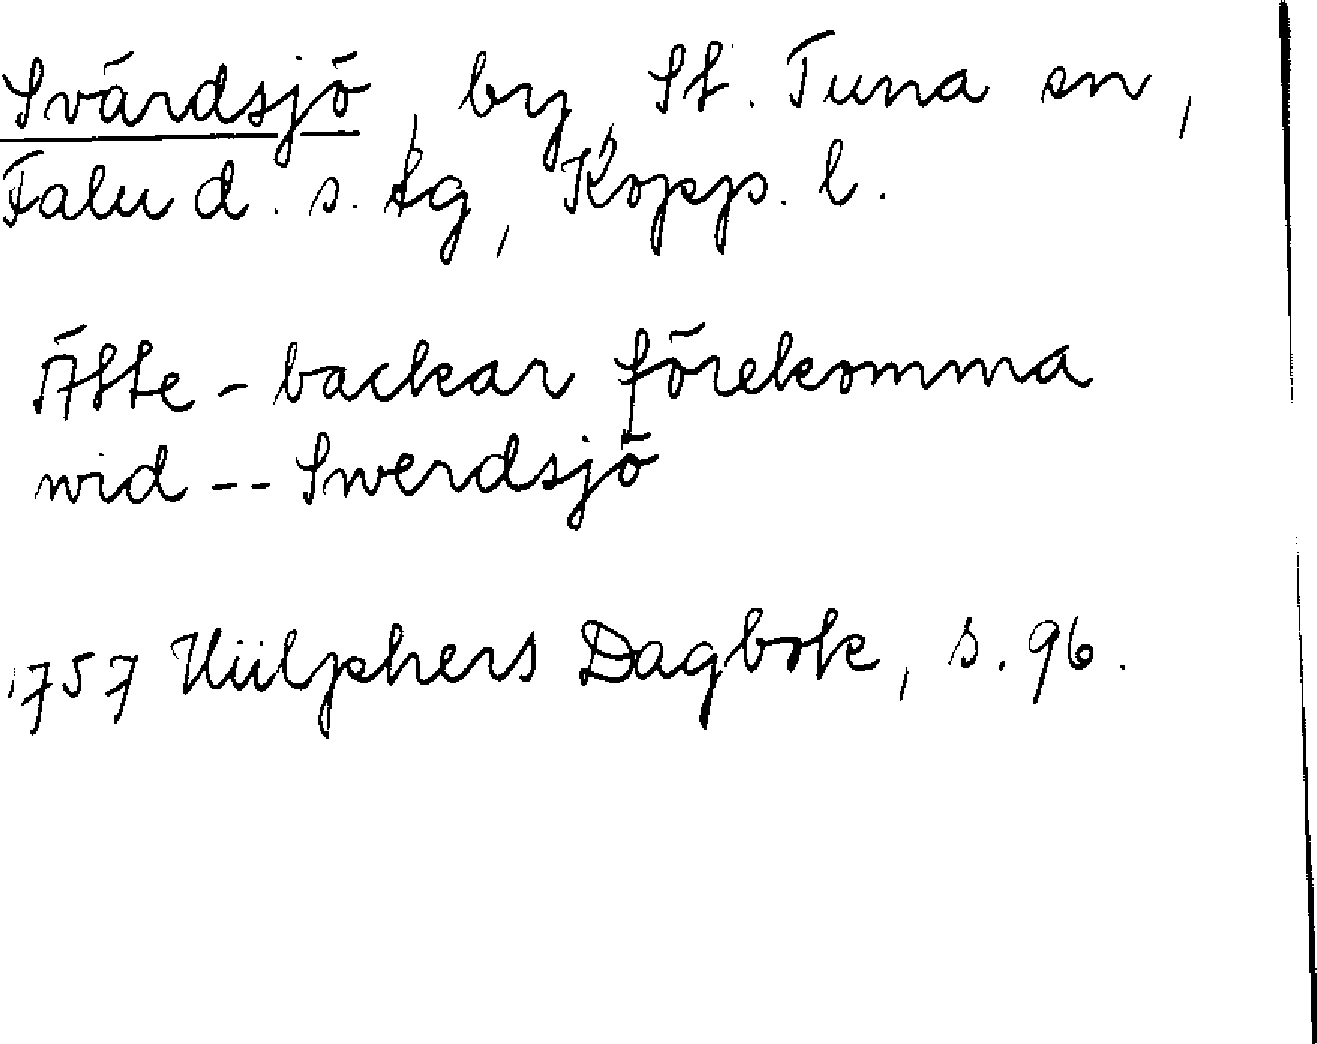 Svärdsjö, by, St. Tuna sn,
Falu d. s. tg, Kopp. l.
Ätte-backar förekomma
wid -- Swerdsjö
1757 Hülphers Dagbok, s. 96.